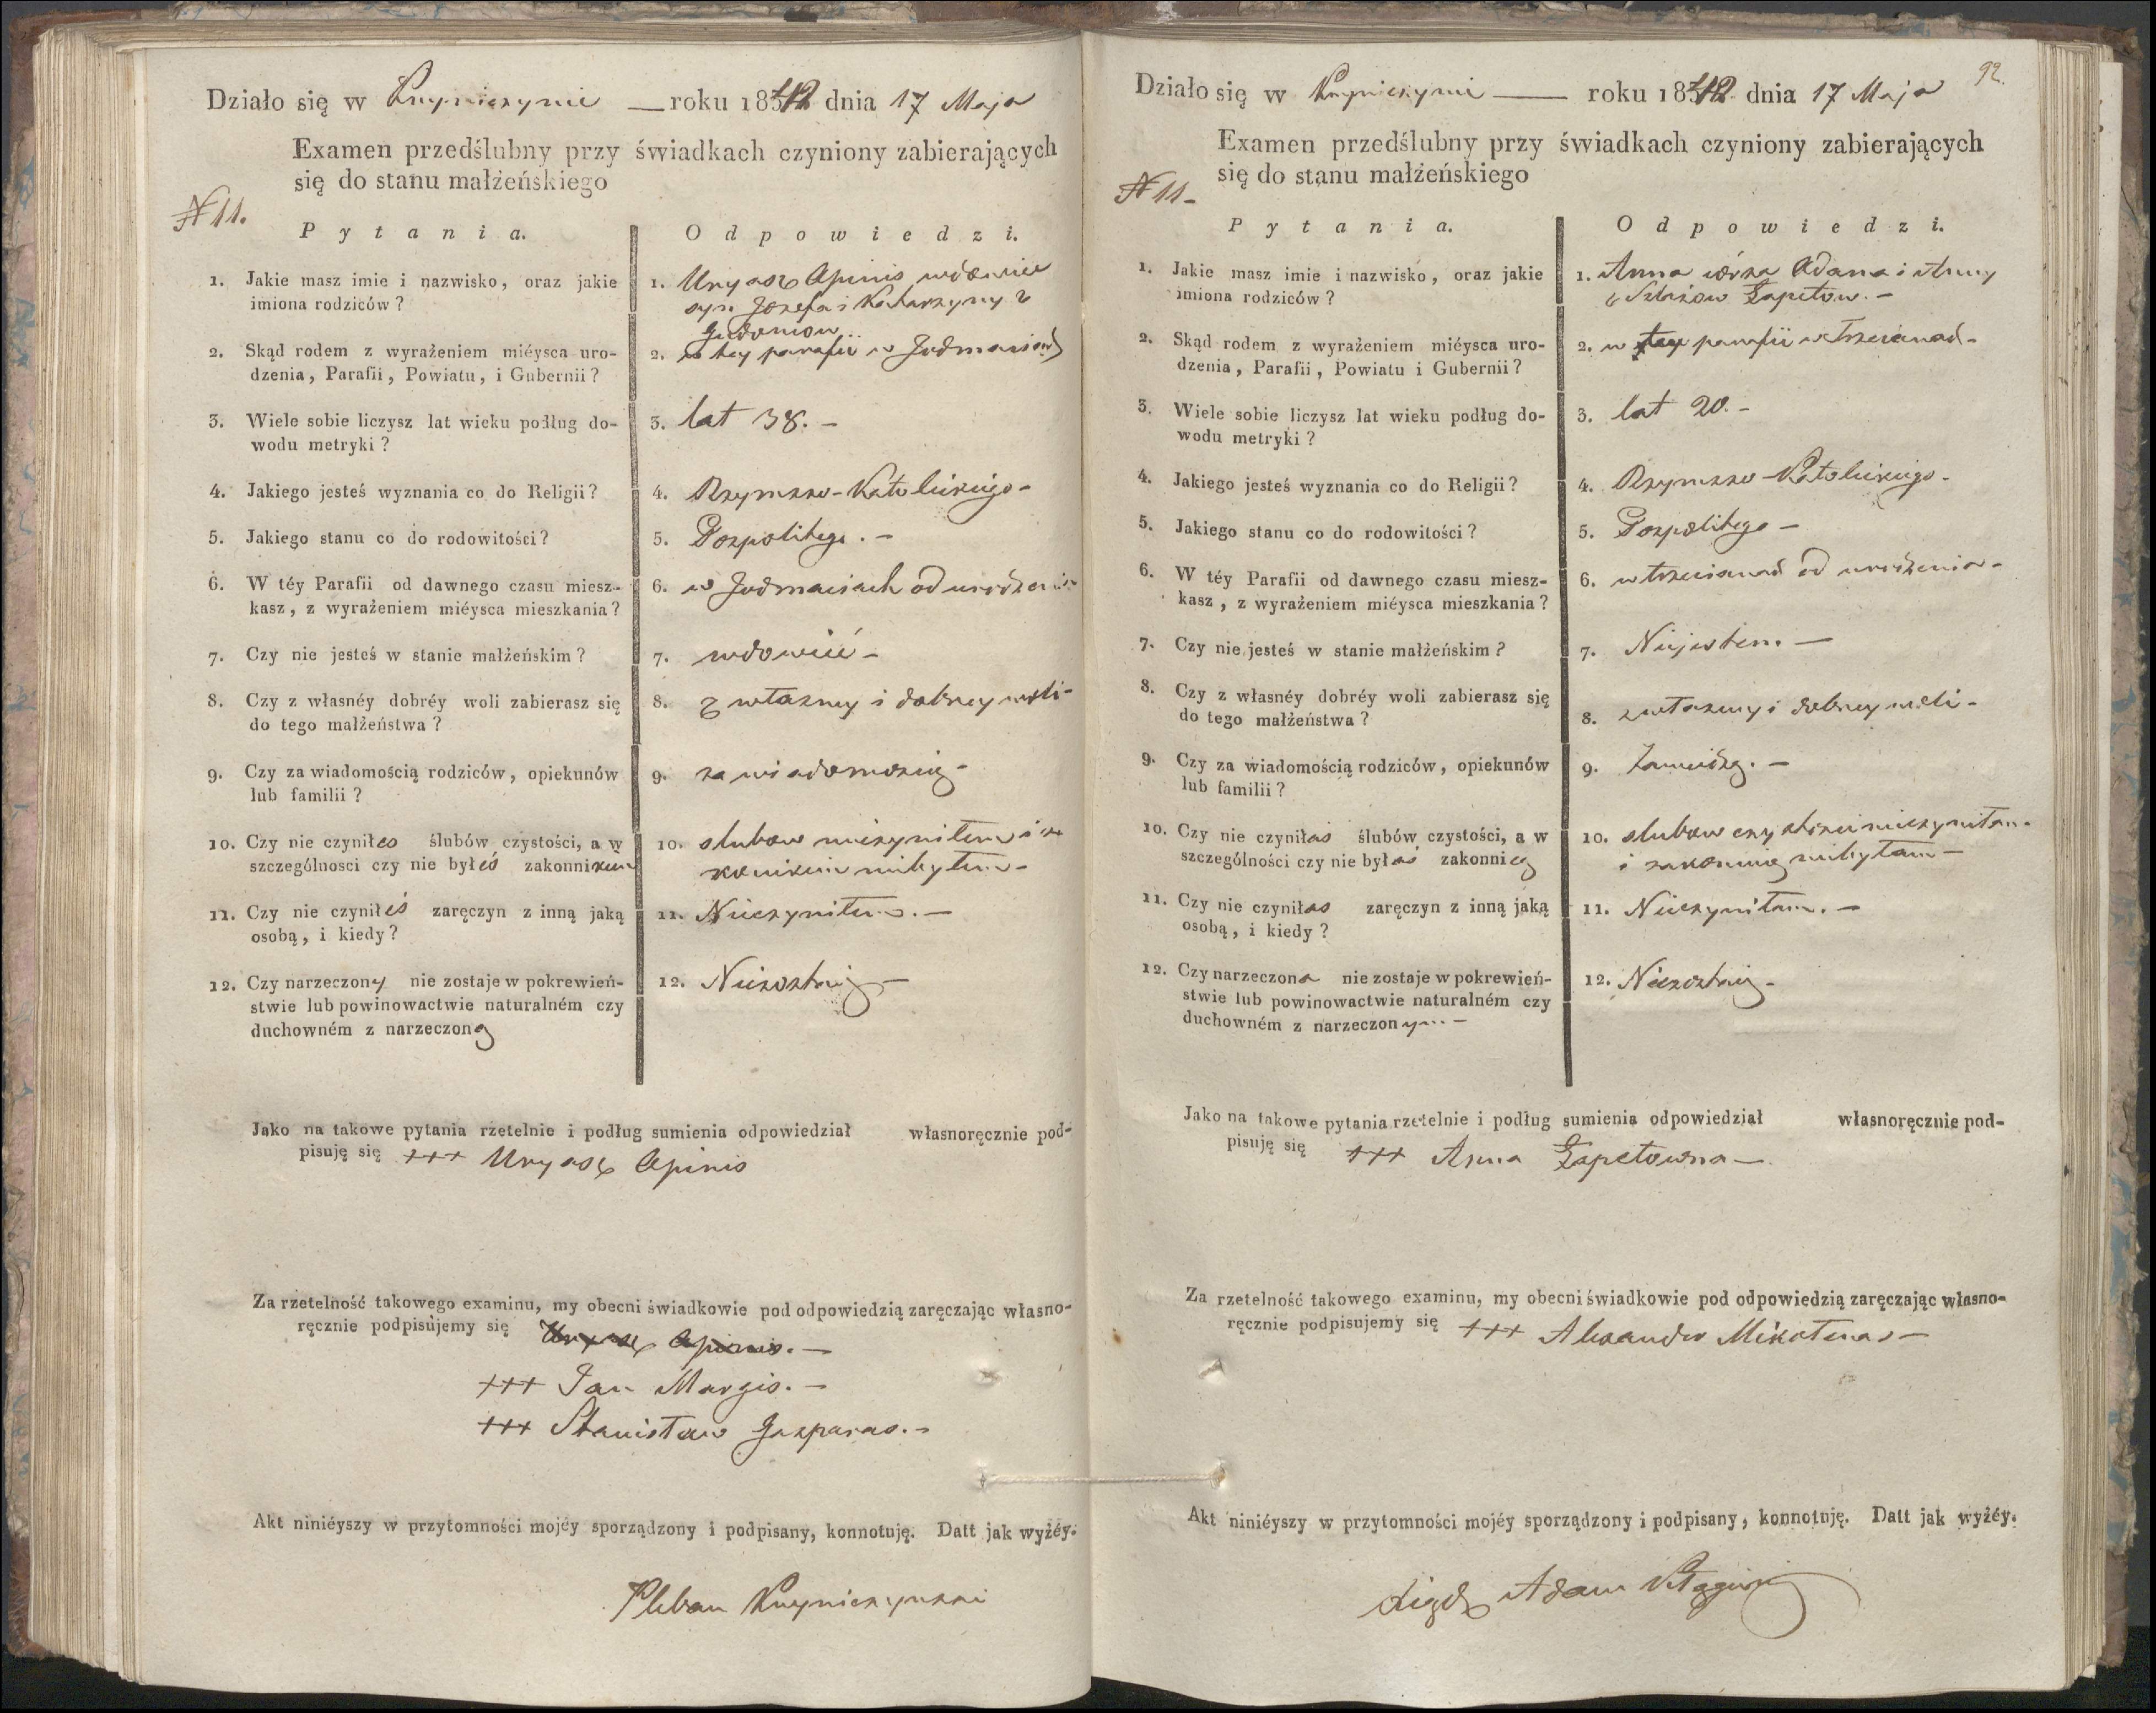 Działo się w Knyniczynie — roku 1842 dnia 17 Maja
Examen przedślubny przy świadkach czyniony zabierających
się do stanu małżeńskiego
N 11.
Pytania.
Odpowiedzi.
1. Jakie masz imie i nazwisko, oraz jakie
imiona rodziców?
1. Uryasz Apinis wdowiec
syn Jozefa i Katarzyny z
2. Skąd rodem z wyrażeniem miéysca uro-
dzenia, Parafii, Powiatu, i Gubernii?
2. w tey parafii w
3. Wiele sobie liczysz lat wieku podług do-
wodu metryki?
3. lat 38. -
4. Jakiego jesteś wyznania co do Religii?
4. Rzymsko-Katolickiego-
5. Jakiego stanu co do rodowitości?
5. Pospolitego. -
6. W téy Parafii od dawnego czasu miesz-
kasz, z wyrażeniem miéysca mieszkania?
6. w Jodmaisiach od urodzenia
7. Czy nie jesteś w stanie małżeńskim?
7. wdowiec -
8. Czy z własnéy dobréy woli zabierasz się
do tego małżeństwa?
8. z własney i dobrey woli-
9. Czy za wiadomością rodziców, opiekunów
lub familii?
9. za wiadomością-
10. Czy nie czyniłes ślubów czystości, a w
szczególnosci czy nie byłeś zakonnikiem
10. slubow nieczyniłem i za
konnikiem niebyłem-
11. Czy nie czyniłeś zaręczyn z inną jaką
osobą, i kiedy?
11. Nieczyniłem. -
12. Czy narzeczony nie zostaje w pokrewień-
stwie lub powinowactwie naturalném czy
duchowném z narzeczoną
12. Niezostaię -
Jako na takowe pytania rzetelnie i podług sumienia odpowiedział własnoręcznie pod-
pisuję się +++ Uryasz Apinis
Za rzetelność takowego examinu, my obecni świadkowie pod odpowiedzią zaręczając własno-
ręcznie podpisujemy się Uryasz Apinis. -
+++ Jan Margis. -
+++ Stanisław Gasparas. -
Akt niniéyszy w przytomności mojéy sporządzony i podpisany, konnotuję. Datt jak wyżéy.
Pleban Knyniczynski
92.
Działo się w Knyniczynie — roku 1842 dnia 17 Maja
Examen przedślubny przy świadkach czyniony zabierających
się do stanu małżeńskiego
N 11-
Pytania.
Odpowiedzi.
1. Jakie masz imie i nazwisko, oraz jakie
imiona rodziców?
1. Anna córka Adama i Anny
Łapetow. -
2. Skąd rodem z wyrażeniem miéysca uro-
dzenia, Parafii, Powiatu i Gubernii?
2. w tey parafii w Trzecianad-
3. Wiele sobie liczysz lat wieku podług do-
wodu metryki?
3. lat 20. -
4. Jakiego jesteś wyznania co do Religii?
4. Rzymsko-Katolickiego-
5. Jakiego stanu co do rodowitości?
5. Pospolitego -
6. W téy Parafii od dawnego czasu miesz-
kasz, z wyrażeniem miéysca mieszkania?
6. w trzecianad od urodzenia-
7. Czy nie jesteś w stanie małżeńskim?
7. Niejestem. -
8. Czy z własnéy dobréy woli zabierasz się
do tego małżeństwa?
8. z własney i dobrey woli-
9. Czy za wiadomością rodziców, opiekunów
lub familii?
9.
10. Czy nie czyniłas ślubów czystości, a w
szczególności czy nie byłaś zakonnicą
10. slubow czystości nieczyniłam-
i zakonnicą niebyłam-
11. Czy nie czyniłas zaręczyn z inną jaką
osobą, i kiedy?
11. Nieczyniłam. -
12. Czy narzeczona nie zostaje w pokrewień-
stwie lub powinowactwie naturalném czy
duchowném z narzeczonym -
12. Niezostaię-
Jako na takowe pytania rzetelnie i podług sumienia odpowiedział własnoręcznie pod-
pisuję się +++ Anna Łapetowna -
Za rzetelność takowego examinu, my obecni świadkowie pod odpowiedzią zaręczając własno-
ręcznie podpisujemy się +++ Alexander Mikołenas -
Akt niniéyszy w przytomności mojéy sporządzony i podpisany, konnotuję. Datt jak wyżéy.
Xiądz Adam